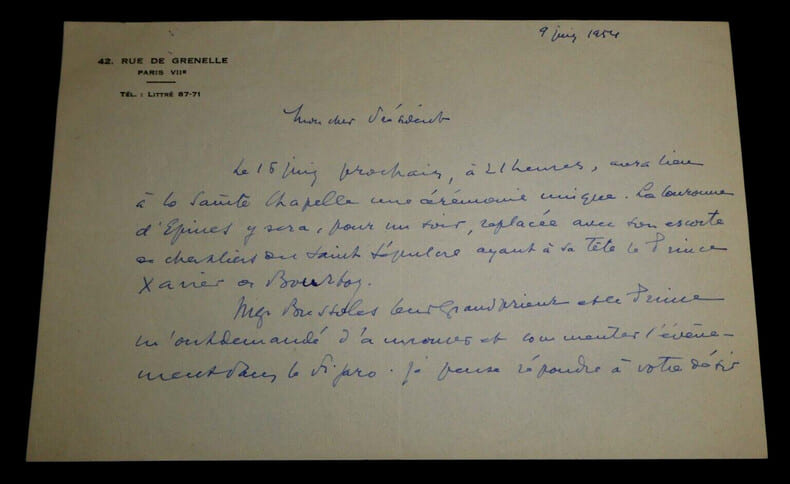 9 juin 1954
42, RUE DE GRENELLE
PARIS VIIe
TÉL. : LITTRÉ 87-71
Mon cher Président
Le 15 juin prochain, à 21 heures, aura lieu
à la Sainte Chapelle une cérémonie unique. La Couronne
d'Epines y sera, pour un soir, replacée avec son escorte
de chevaliers du Saint Sépulcre ayant à sa tête le Prince
Xavier de Bourbon.
Mgr leur Grand Prieur et le Prince
m'ont demandé d'annoncer et commenter l'évène-
ment dans le Figaro. Je pense répondre à votre désir